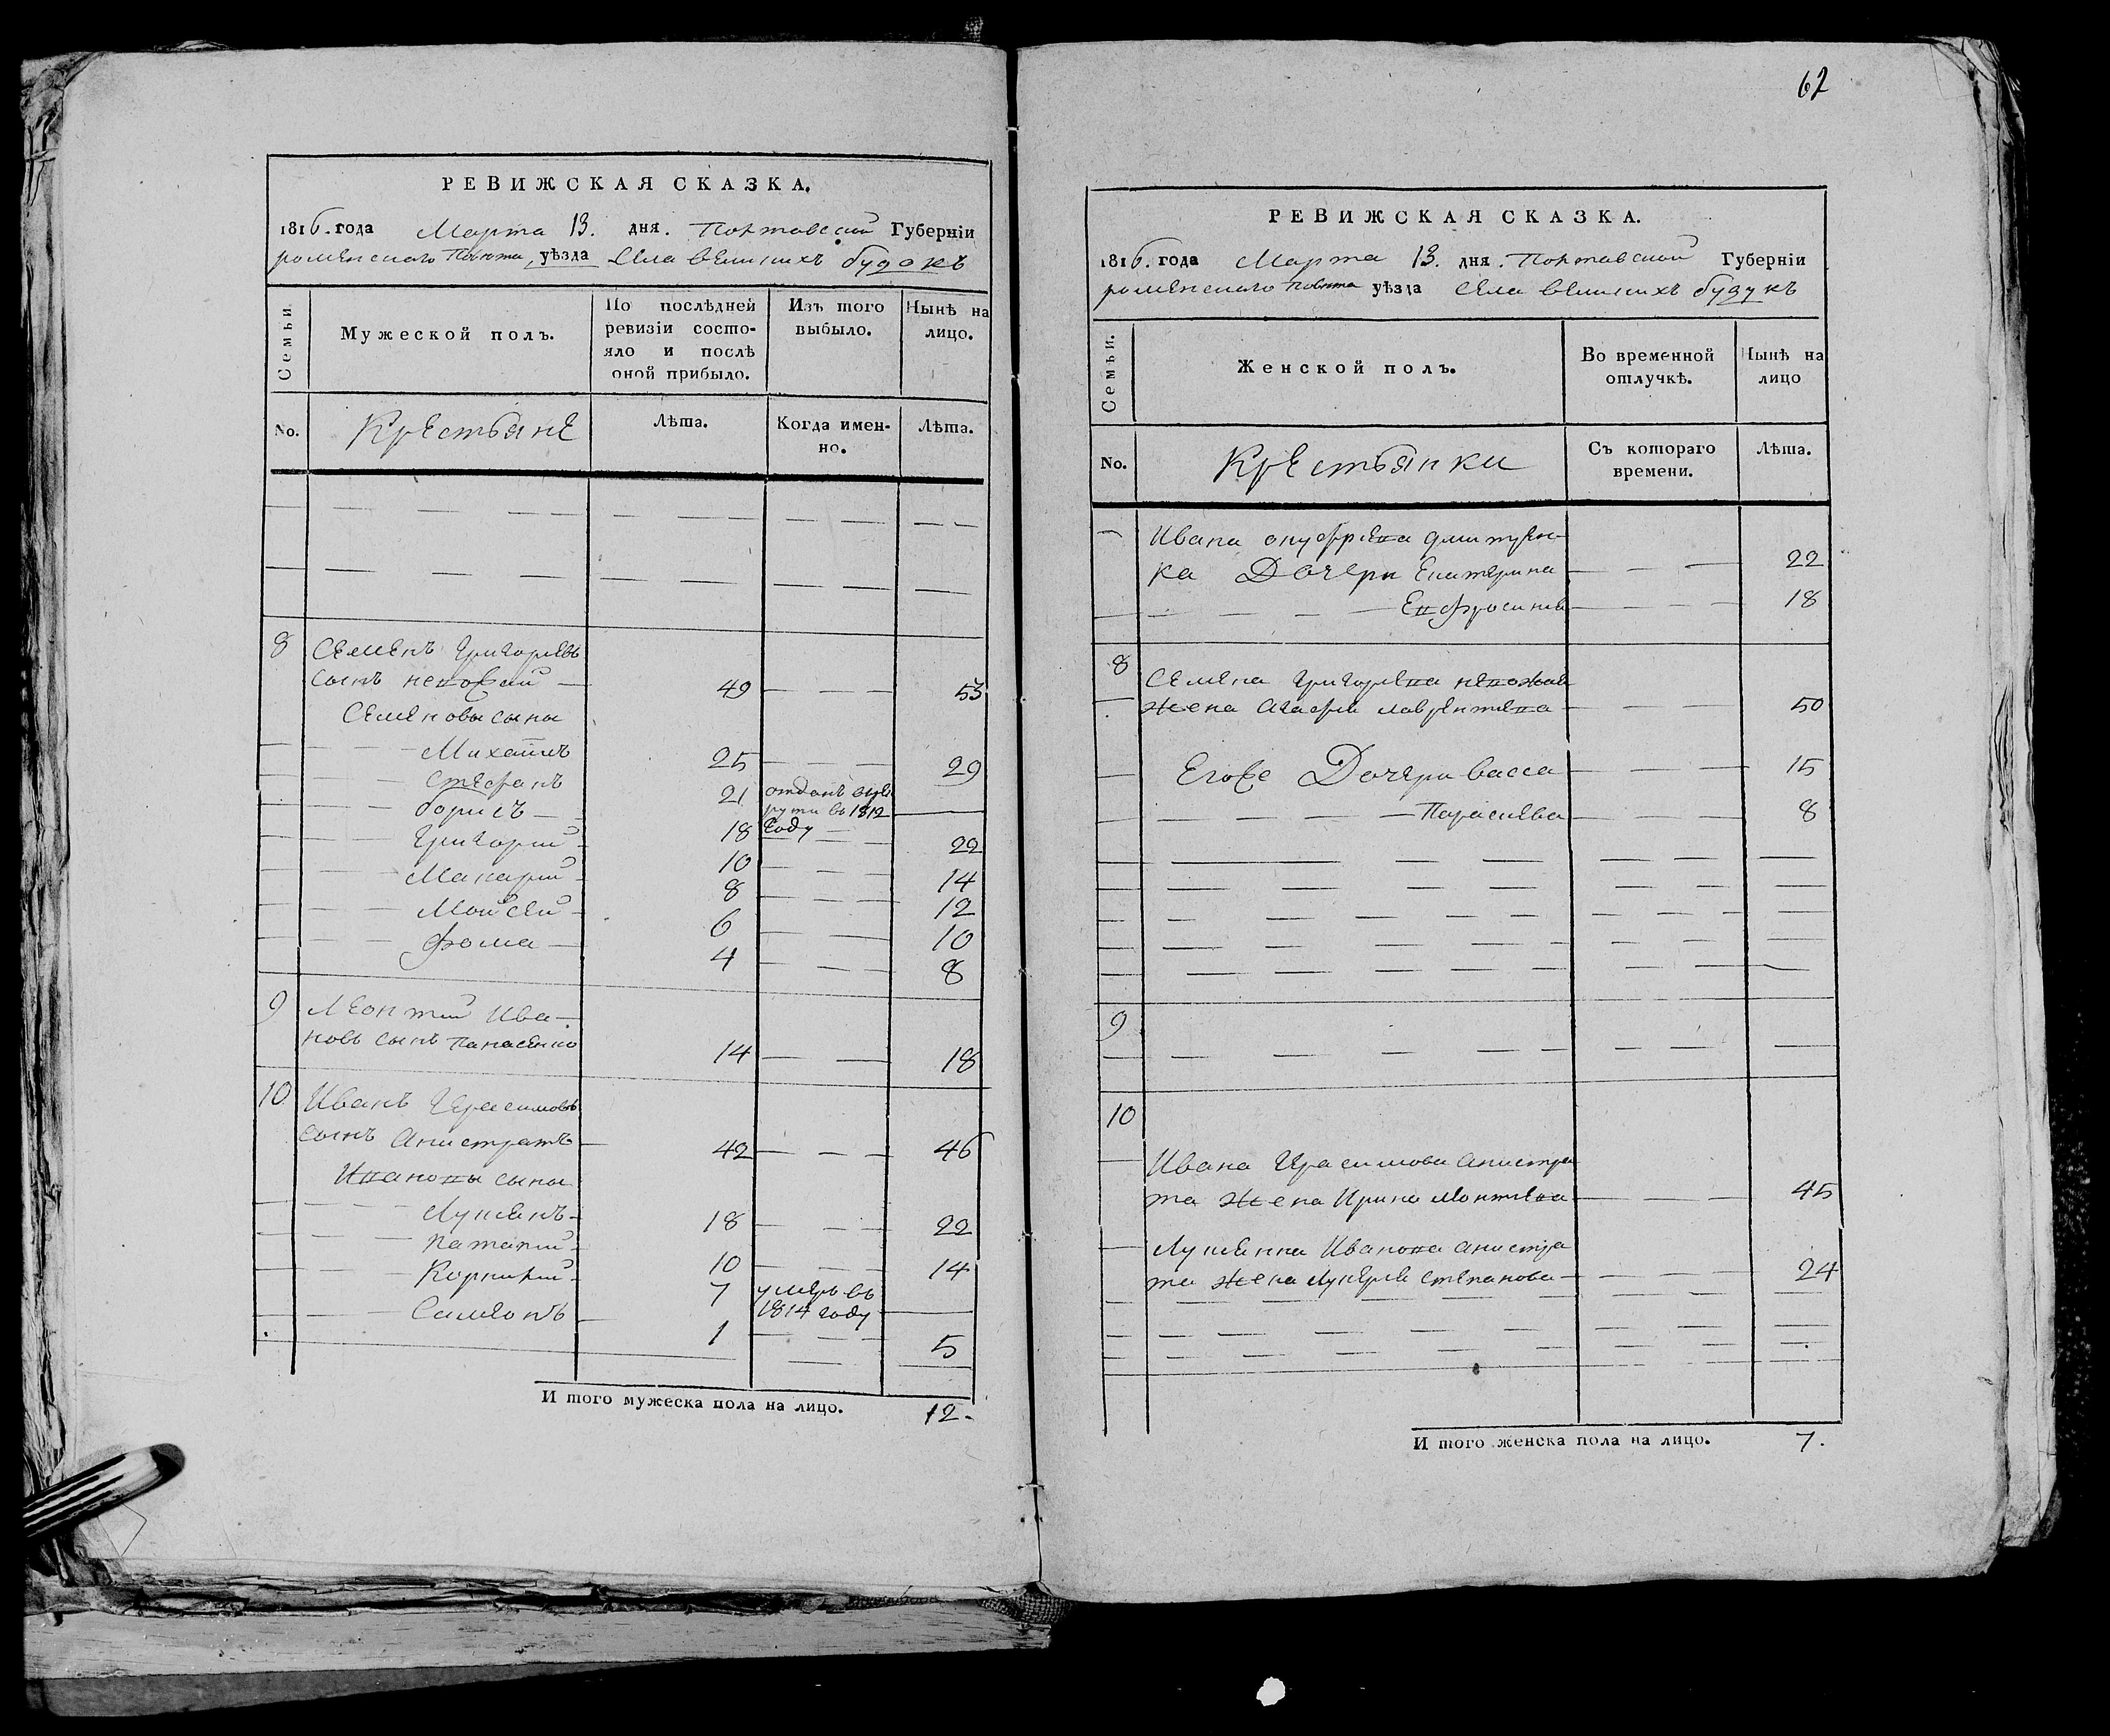 РЕВИЖСКАЯ СКАЗКА.
1816. года Марта 13. дня. Полтавской Губерніи
роменского повета, уѣзда Села великихъ будокъ
Семьи.
Мужеской полъ.
По послѣдней
ревизіи состо-
яло и послѣ
оной прибыло.
Изъ того
выбыло.
Нынѣ на
лицо.
No.
Крестьяне
Лѣта.
Когда имен-
но.
Лѣта.
8 Семенъ Григорьевъ
сынъ 49 53
Семеновы сыны
Михайло 25 29
Стефанъ 21 отданъ
рути въ 1812
борисъ 18 году 22
Григорий 10 14
Макарий 8 12
Мойсей 6 10
фома 4 8
9 Леонтий Ива-
новъ сынъ Панасенко 14 18
10 Иванъ Герасимовъ
сынъ Анистратъ 42 46
Ивановы сыны
Лукиянъ 18 22
Потапий 10 14
Корнилий 7 умеръ въ
1814 году
Самсонъ 1 5
И того мужеска пола на лицо. 12.
62
РЕВИЖСКАЯ СКАЗКА.
1816. года Марта 13. дня. Полтавской Губерніи
роменского повета уѣзда Села великихъ будукъ
Семьи.
Женской полъ.
Во временной
отлучкѣ.
Нынѣ на
лицо
No.
Крестьянки
Съ котораго
времени.
Лѣта.
Ивана онуфриева дмитрен-
ка Дочери Екатерина 22
Евфросиния 18
8 Семена григориева
жена Агафия лаврентиева 50
Егоже Дочери васса 15
Параскева 8
9
10
Ивана Герасимова анистра
та жена Ирина леонтиева 45
Лукияна Иванова анистра
та жена Лукерия степанова 24
И того женска пола на лицо. 7.